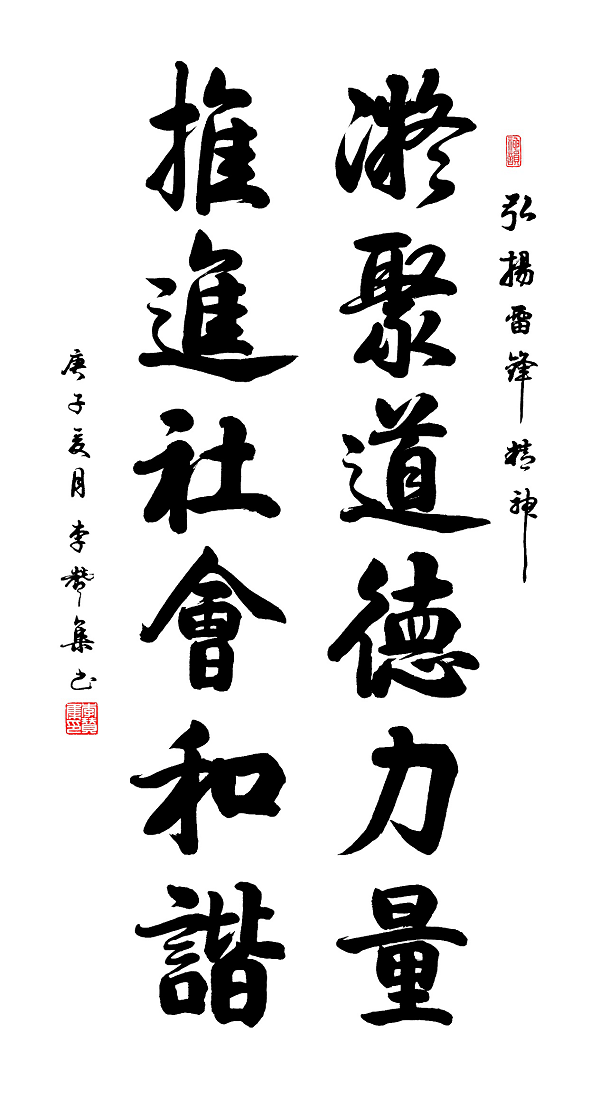 弘揚雷鋒精神
凝聚道德力量
推進社會和諧
庚子夏月李贊集书